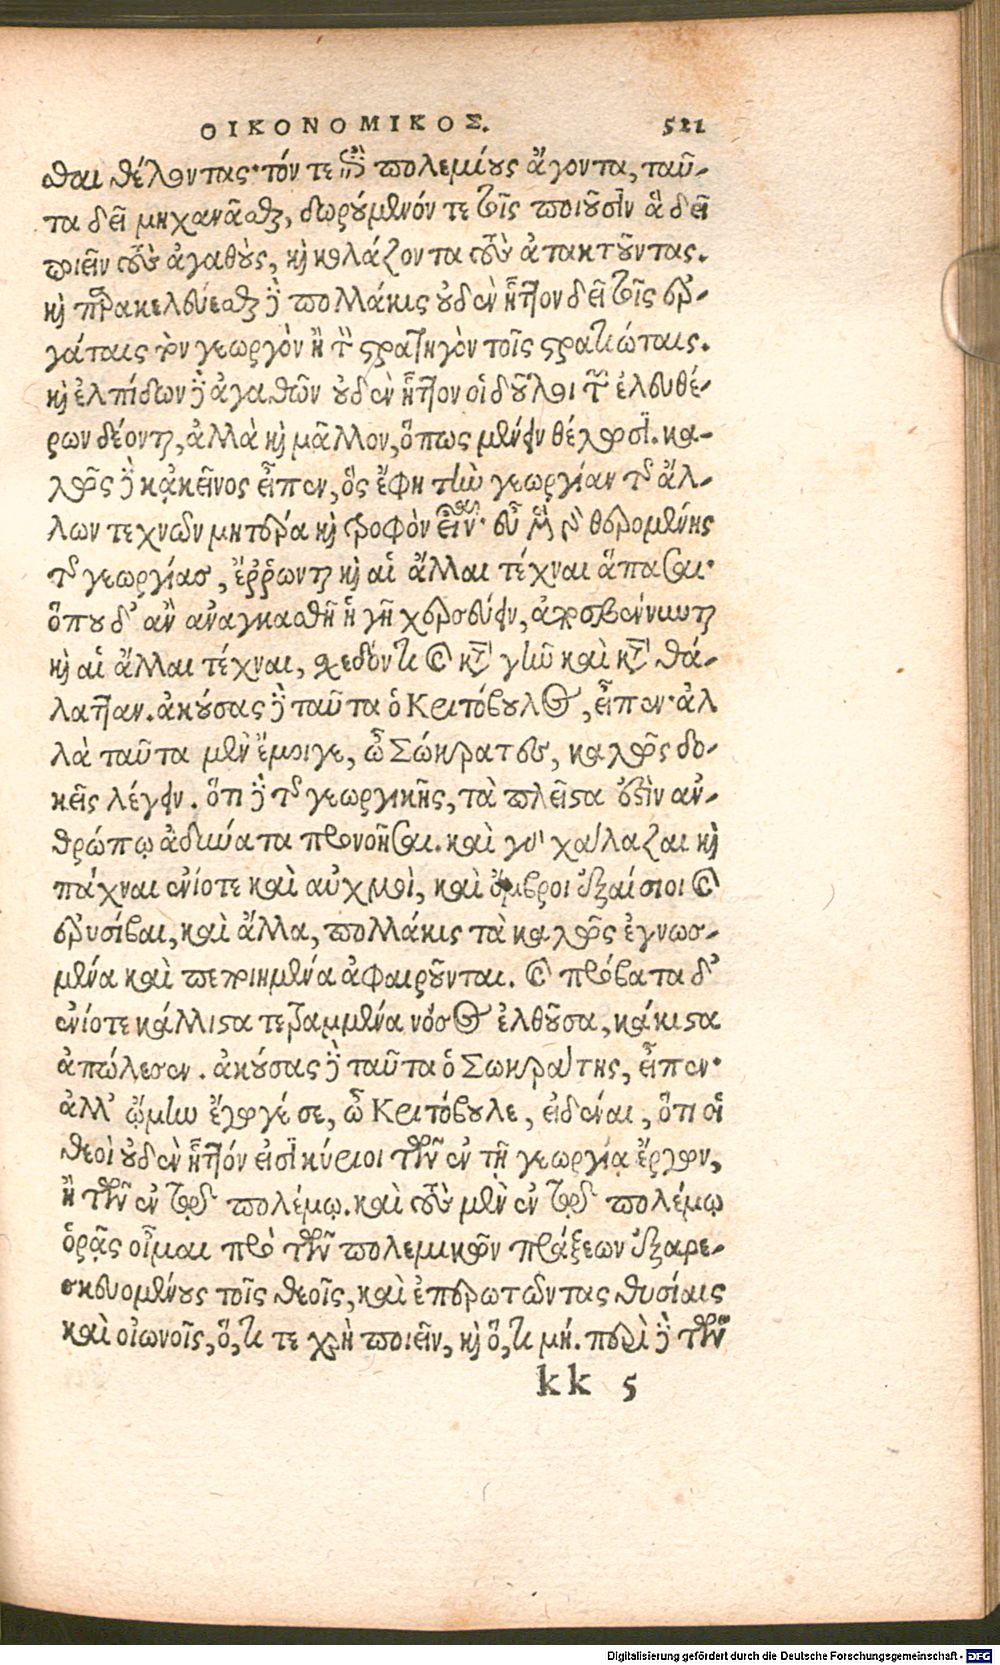 ΟΙΚΟΝΟΜΙΚΟΣ. 521
σθαι θέλοντας· τόν τε ἐπὶ πολεμίους ἄγοντα, ταῦ-
τα δεῖ μηχανᾶσθαι, δωρούμενόν τε τοῖς ποιοῦσιν ἃ δεῖ
ποιεῖν τοὺς ἀγαθοὺς, καὶ κολάζοντα τοὺς ἀτακτοῦντας.
καὶ παρακελεύεσθαι δὲ πολλάκις οὐδὲν ἧττον δεῖ τοῖς ἐρ-
γάταις τὸν γεωργὸν ἢ τὸν στρατηγὸν τοῖς στρατιώταις.
καὶ ἐλπίδων δὲ ἀγαθῶν οὐδὲν ἧττον οἱ δοῦλοι τῶν ἐλευθέ-
ρων δέονται, ἀλλὰ καὶ μᾶλλον, ὅπως μένειν θέλωσι. κα-
λῶς δὲ κᾀκεῖνος εἶπεν, ὃς ἔφη τὴν γεωργίαν τῶν ἄλ-
λων τεχνῶν μητέρα καὶ τροφὸν εἶναι· εὖ μὲν γὰρ φερομένης
τῆς γεωργίας, ἔῤῥωνται καὶ αἱ ἄλλαι τέχναι ἅπασαι·
ὅπου δ' ἂν ἀναγκασθῇ ἡ γῆ χερσεύειν, ἀποσβέννυνται
καὶ αἱ ἄλλαι τέχναι, σχεδόν τι καὶ κατὰ γῆν καὶ κατὰ θά-
λατταν. ἀκούσας δὲ ταῦτα ὁ Κριτόβουλος, εἶπεν· ἀλ
λὰ ταῦτα μὲν ἔμοιγε, ὦ Σώκρατες, καλῶς δο-
κεῖς λέγειν. ὅτι δὲ τῆς γεωργικῆς, τὰ πλεῖστα ἐστὶν ἀν-
θρώπῳ ἀδύνατα προνοῆσαι. καὶ γὰρ χάλαζαι καὶ
πάχναι ἐνίοτε καὶ αὐχμοὶ, καὶ ὄμβροι ἐξαίσιοι καὶ
ἐρυσίβαι, καὶ ἄλλα, πολλάκις τὰ καλῶς ἐγνωσ-
μένα καὶ πεποιημένα ἀφαιροῦνται. καὶ πρόβατα δ'
ἐνίοτε κάλλιστα τεθραμμένα νόσος ἐλθοῦσα, κάκιστα
ἀπώλεσεν. ἀκούσας δὲ ταῦτα ὁ Σωκράτης, εἶπεν·
ἀλλ' ᾤμην ἔγωγέ σε, ὦ Κριτόβουλε, εἰδέναι, ὅτι οἱ
θεοὶ οὐδὲν ἧττόν εἰσι κύριοι τῶν ἐν τῇ γεωργίᾳ ἔργων,
ἢ τῶν ἐν τῷ πολέμῳ. καὶ τοὺς μὲν ἐν τῷ πολέμῳ
ὁρᾷς οἶμαι πρὸ τῶν πολεμικῶν πράξεων ἐξαρε-
σκευομένους τοῖς θεοῖς, καὶ ἐπερωτῶντας θυσίαις
καὶ οἰωνοῖς, ὅ,τι τε χρὴ ποιεῖν, καὶ ὅ,τι μή. περὶ δὲ τῶν
kk 5
Digitalisierung gefördert durch die Deutsche Forschungsgemeinschaft - DFG